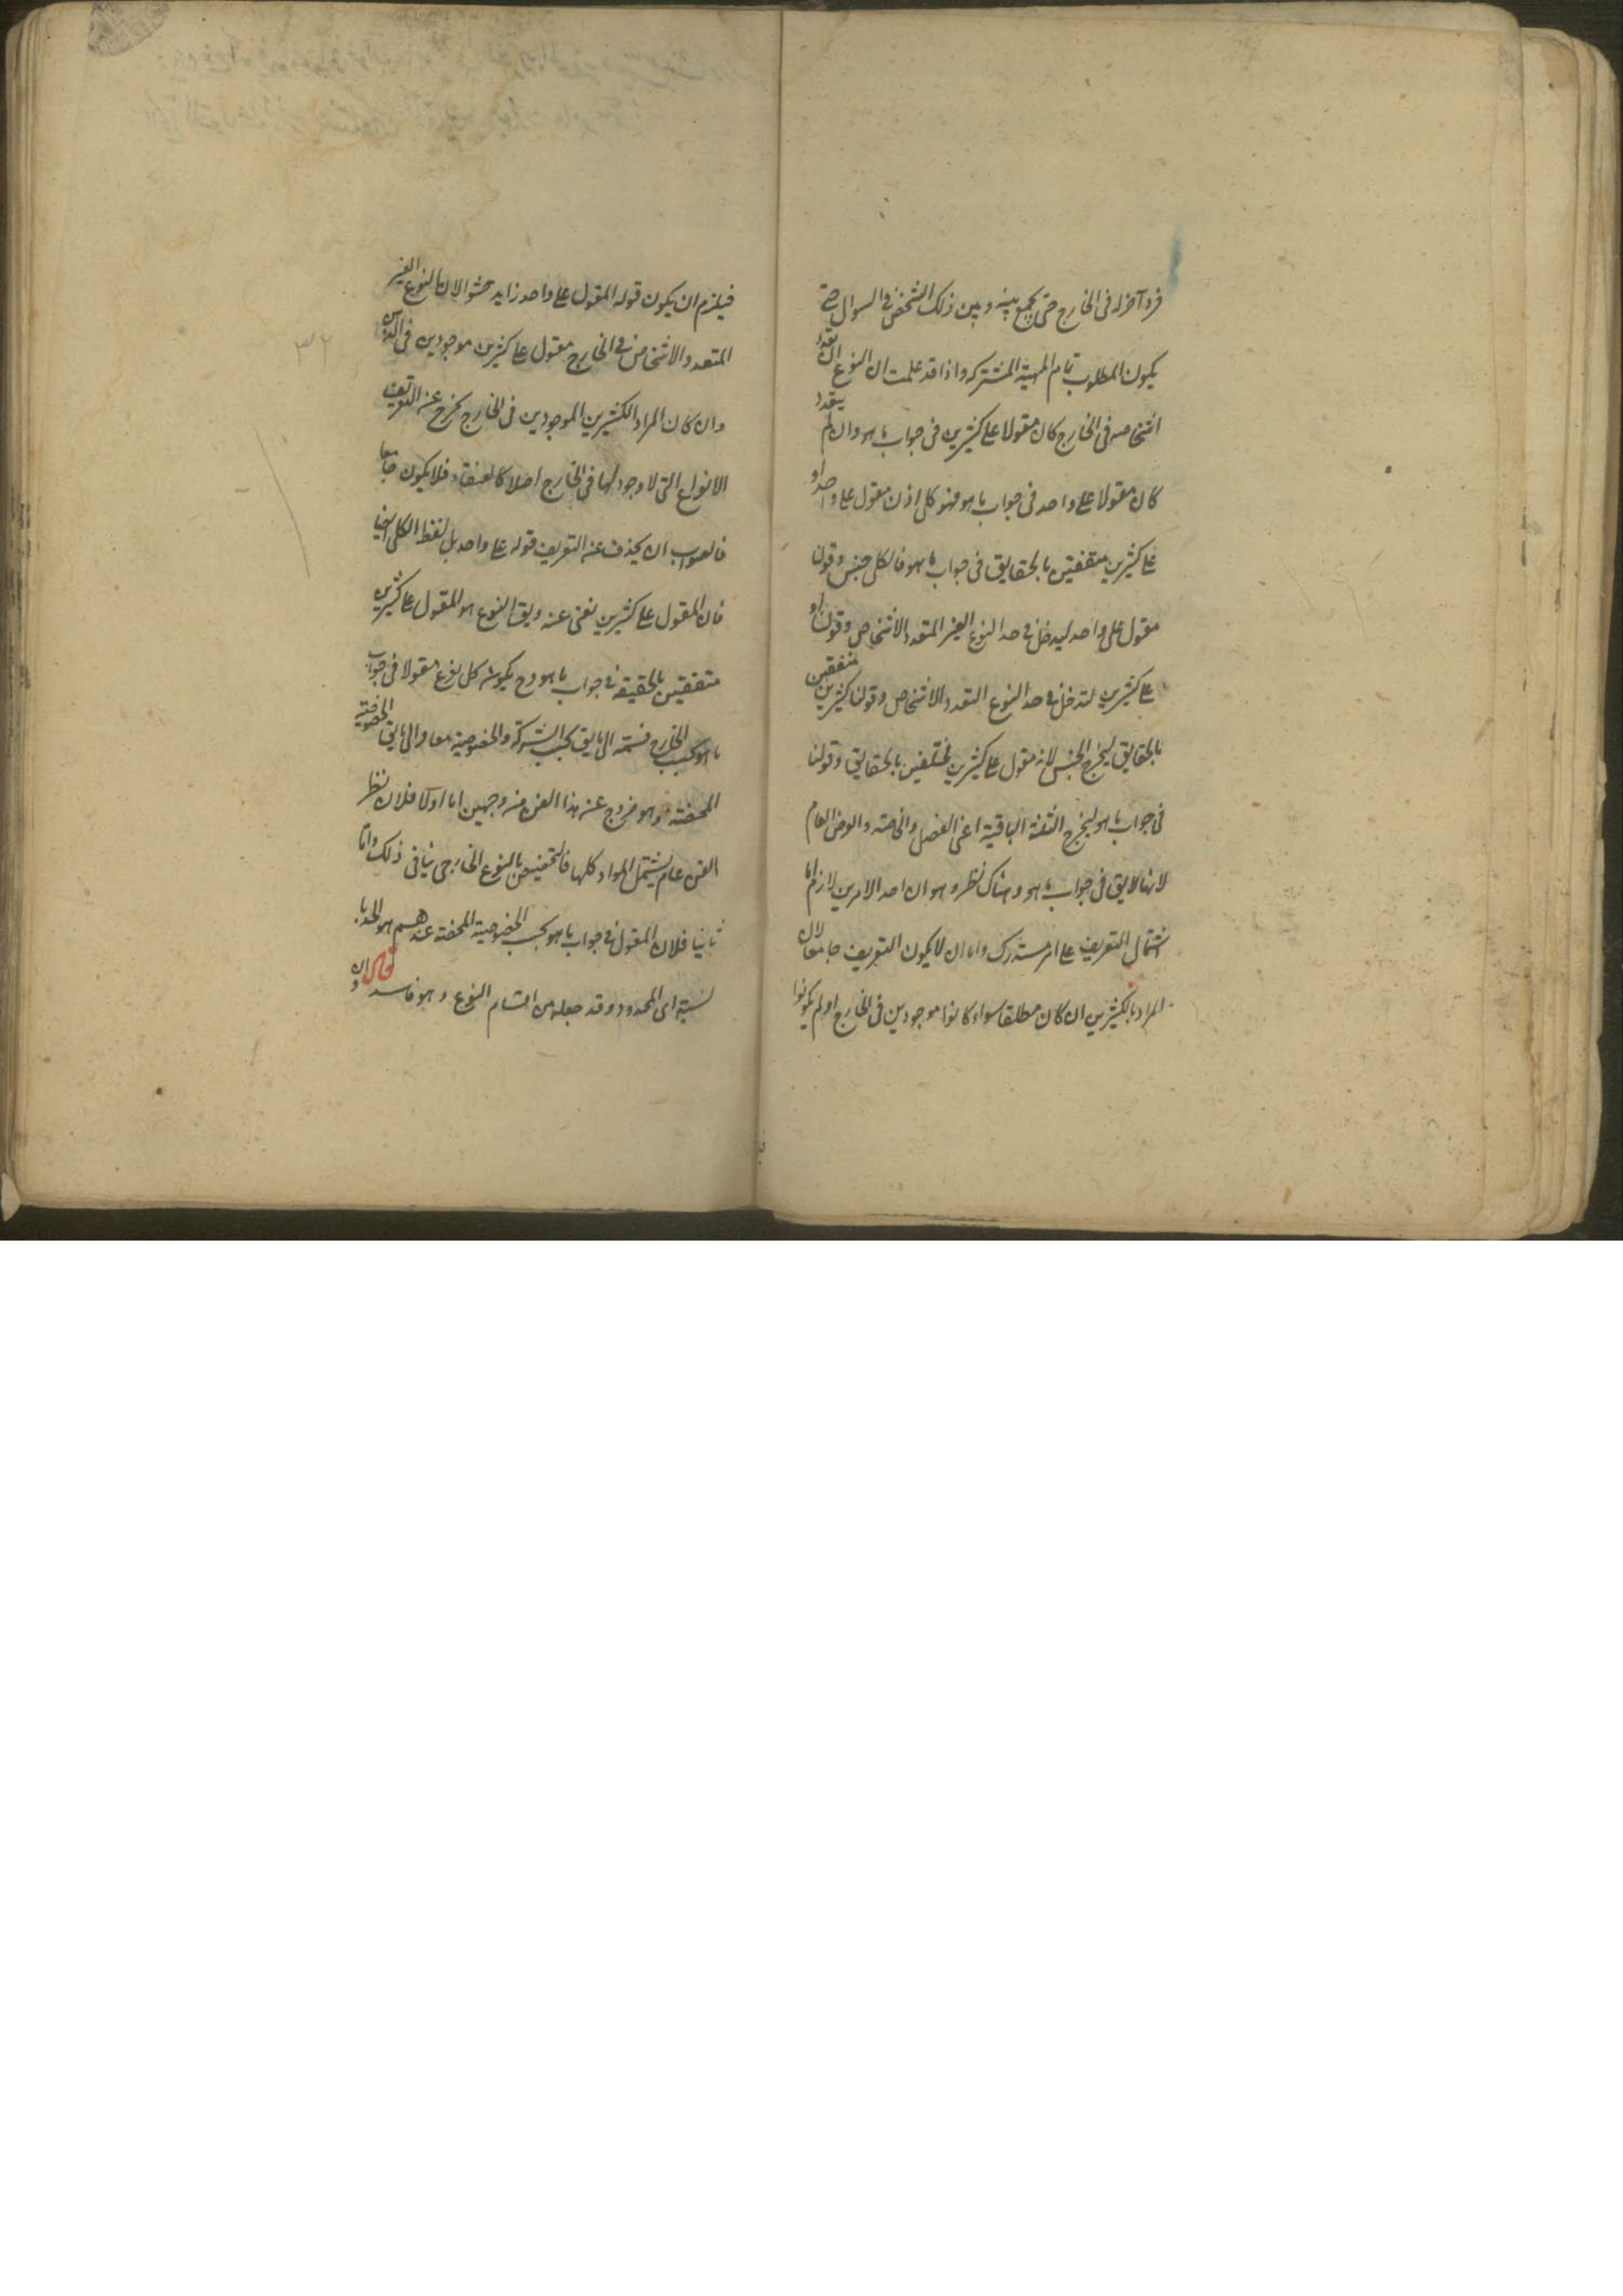 فرد آخر له فى الخارج حتى يجمع بينه وبين ذلك الشخص فى السوال حتى
يكون المطلوب تمام المهية المشتركه واذا قد علمت ان النوع ان تعدد
اشخاصه فى الخارج كان مقولا على كثيرين فى جواب ما هو وان لم يتعدد
كان مقولا على واحد فى جواب ما هو فهو كلى اذن مقول على واحد او
على كثيرين متفقين بالحقايق فى جواب ما هو فالكلى جنس وقولنا
مقول على واحد ليدخل فى حد النوع الغير المتعدد الاشخاص وقولنا او
على كثيرين لتدخل فى حد النوع المتعدد الاشخاص وقولنا كثيرين متفقين
بالحقايق ليخرج الجنس لانه مقول على كثيرين مختلفين بالحقايق وقولنا
فى جواب ما هو ليخرج الثلثة الباقية اعنى الفصل والخاصة والعرض العام
لانها لا يق فى جواب ما هو وهناك نظر وهو ان احد الامرين لازم اما
اشتمال التعريف على امر مستدرك واما ان لا يكون التعريف جامعا لان
المراد بالكثيرين ان كان مطلقا سواء كانوا موجودين فى الخارج او لم يكونوا
فيلزم ان يكون قوله المقول على واحد زايد حشو الان النوع الغير
المتعدد الاشخاص فى الخارج مقول على كثيرين موجودين فى الذهن
وان كان المراد الكثيرين الموجودين فى الخارج يخرج عنه التعريف
الانواع التى لا وجود لها فى الخارج اصلا كالعنقاء فلا يكون جامعا
فالصواب ان يحذف عنه التعريف قوله على واحد بل لفظ الكلى ايضا
فان المقول على كثيرين يغنى عنه ويق النوع هو المقول على كثيرين
متفقين بالحقيقة فى جواب ما هو وح يكون كل نوع مقولا فى جواب
ما هو بحسب الخارج قسمه الى ما يق بحسب الشركة والخصوصية معا والى ما يق الخصوصية
المحضة وهو خروج عن هذا الفن من وجهين اما اولا فلان نظر
الفن عام يشتمل المواد كلها فالتخصيص بالنوع الخارجى ينافى ذلك واما
ثانيا فلان المقول فى جواب ما هو بحسب الخصوصية المحضة عندهم هو الحد با
لنسبة الى المحدود وقد جعله من اقسام النوع وهو فاسد قال وان
٣٢